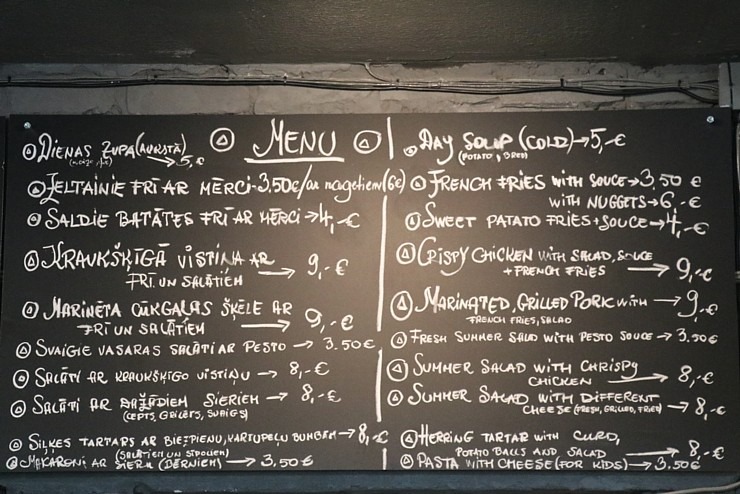 MENU
DIENAS ZUPA (AUKSTĀ)
→ 5,-€
ZELTAINIE FRĪ AR MĒRCI - 3.50€/ar nagetiem (6€)
SALDIE BATĀTES FRĪ AR MĒRCI → 4,-€
KRAUKŠĶĪGĀ VISTIŅA AR
FRĪ UN SALĀTIEM → 9,-€
MARINĒTA CŪKGAĻAS ŠĶĒLE AR
FRĪ UN SALĀTIEM → 9,-€
SVAIGIE VASARAS SALĀTI AR PESTO → 3.50€
SALĀTI AR KRAUKŠĶĪGO VISTIŅU → 8,-€
SALĀTI AR DAŽĀDIEM SIERIEM → 8,-€
(CEPTS, GRILĒTS, SVAIGS)
SIĻĶES TARTARS AR BIEZPIENU, KARTUPEĻU BUMBĀM → 8,-€
(SALĀTIEM UN SĪPOLIEM)
MAKARONI AR SIERU (BĒRNIEM) → 3,50€
DAY SOUP (COLD) → 5,-€
FRENCH FRIES WITH SOUCE → 3,50 €
WITH NUGGETS → 6,-€
SWEET PATATO FRIES + SOUCE → 4,-€
CRISPY CHICKEN WITH SALAD, SOUCE
+ FRENCH FRIES → 9,-€
MARINATED, GRILLED PORK WITH → 9,-€
FRENCH FRIES, SALAD
FRESH SUMMER SALAD WITH PESTO SOUCE → 3.50€
SUMMER SALAD WITH CHRISPY
CHICKEN → 8,-€
SUMMER SALAD WITH DIFFERENT
CHEESE (FRESH, GRILLED, FRIED) → 8,-€
HERRING TARTAR WITH CURD,
POTATO BALLS AND SALAD → 8,-€
PASTA WITH CHEESE (FOR KIDS) → 3,50€